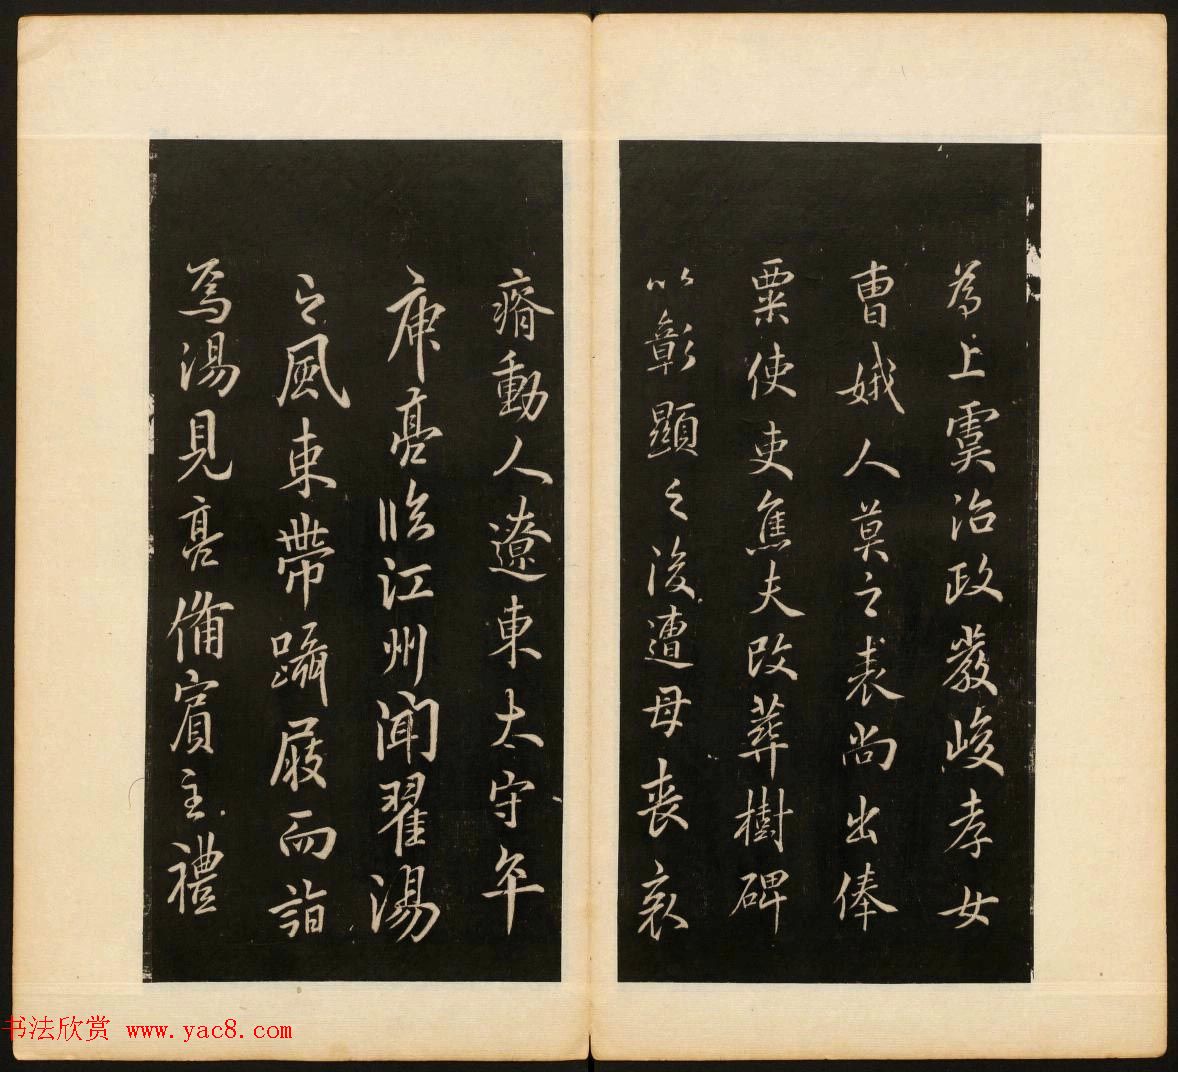 為上虞治政嚴峻孝女
曹娥人莫之表尚出俸
粟使吏焦夫改葬樹碑
以彰顯之後遭母喪哀
瘠動人遼東太守卒
庾亮臨江州聞翟湯
之風束帶躡屐而詣
焉湯見亮備賓主禮
书法欣赏 www.yac8.com